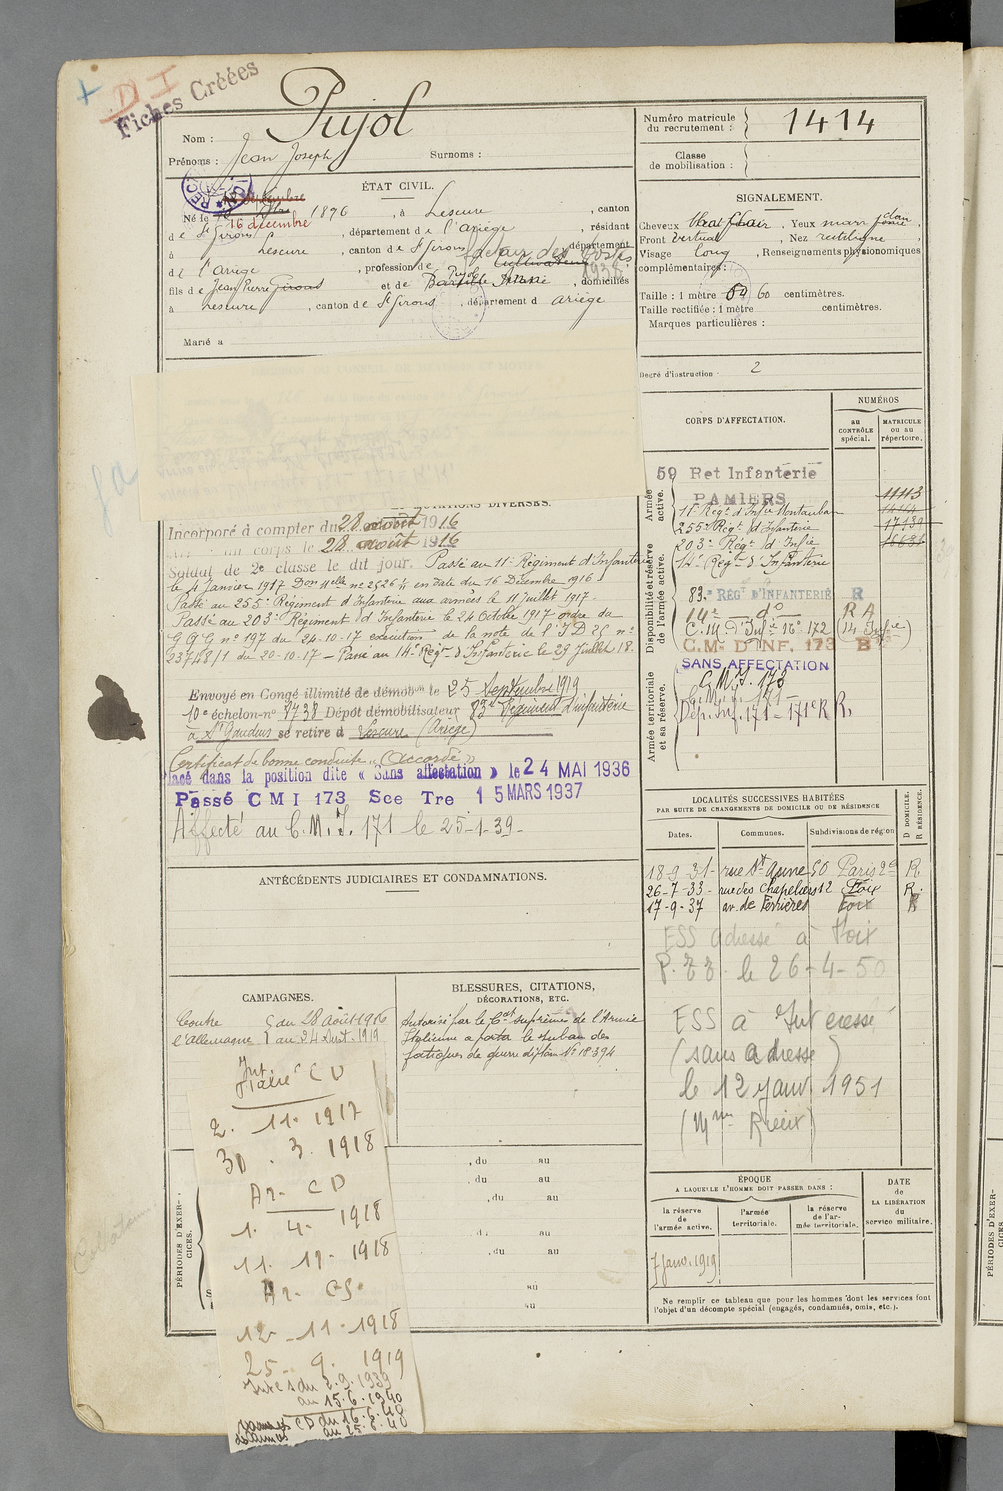 Fiches Créées
D I
Nom : Pujol
Prénoms : Jean Joseph Surnoms :
Numéro matricule du recrutement : 1414
Classe de mobilisation :
ÉTAT CIVIL.
Né le 16 décembre 1896, à Lescure, canton
de St Girons, département de l'Ariège, résidant
à Lescure, canton de St Girons, département
de l'Ariège, profession de facteur des Postes
Cultivateur 1938
fils de Jean Pierre Girons et de Pujol Anne, domiciliés
à Lescure, canton de St Girons, département d Ariège
Marié à
SIGNALEMENT.
Cheveux chat. clair, Yeux marr
Front vertical, Nez rectiligne,
Visage long, Renseignements physionomiques
complémentaires :
Taille : 1 mètre 60 centimètres.
Taille rectifiée : 1 mètre centimètres.
Marques particulières :
Degré d'instruction 2
MUTATIONS DIVERSES.
Incorporé à compter du 28 août 1916
au corps le 28 août 1916
Soldat de 2e classe le dit jour. Passé au 11e Régiment d'Infanterie
le 4 Janvier 1917 Don elle no 2526 en date du 16 Décembre 1916
Passé au 255e Régiment d'Infanterie aux armées le 11 juillet 1917.
Passé au 203e Régiment d'Infanterie le 24 Octobre 1917 ordre du
G Q G no 197 du 24-10-17 exécution de la note de l'I D 25 no
23748/1 du 20-10-17 - Passé au 14e Régt d'Infanterie le 29 Juillet 18.
Envoyé en Congé illimité de démobon le 25 Septembre 1919
10e échelon no 1738 Dépôt démobilisateur 83e Régiment d'infanterie
à St Gaudens se retire à Lescure (Ariège)
Certificat de bonne conduite « Accordé »
lacé dans la position dite « Sans affectation » le 24 MAI 1936
Passé C M I 173 Sce Tre 15 MARS 1937
Affecté au C.M.I. 171 le 25-1-39-
CORPS D'AFFECTATION.
NUMÉROS
au CONTRÔLE spécial.
MATRICULE ou au répertoire.
Armée active.
59 Ret Infanterie
PAMIERS 11113
11e Régt d'Infie Montauban 1414
255e Régt d'Infanterie 17139
203e Régt d'Infie 16631
14e Régt d'Infanterie
Disponibilité et réserve de l'armée active.
83e RÉGt D'INFANTERIE R
14e do R A
C.M. d'Infie no 172 (14 Infie)
C.M. D'INF. 173 B
SANS AFFECTATION
Armée territoriale et sa réserve.
C.M.I. 173
C.M.I. 171
Dép. Inf. 171 - 171e R R.
LOCALITÉS SUCCESSIVES HABITÉES
PAR SUITE DE CHANGEMENTS DE DOMICILE OU DE RÉSIDENCE
Dates. Communes. Subdivisions de région D DOMICILE. R RÉSIDENCE.
18-9-31- rue St Anne 50 Paris 2e R.
26-7-33- rue des Chapeliers 12 Foix R.
17-9-37 av. de Ferrières Foix R
ESS adressé à Foix
P.T.T. le 26-4-50
ESS à Intéressé
(sans adresse)
le 12 janv 1951
ANTÉCÉDENTS JUDICIAIRES ET CONDAMNATIONS.
CAMPAGNES.
Contre du 28 Août 1916
l'Allemagne au 24 Sept. 1919
BLESSURES, CITATIONS,
DÉCORATIONS, ETC.
Autorisé par le Ct suprême de l'Armée
Italienne à porter le ruban des
fatigues de guerre diplôme No 18394
PÉRIODES D'EXERCICES.
, du au
, du au
, du au
du au
, du au
au
au
Int
Italie CD
2. 11. 1917
30. 3. 1918
Ar- CD
1. 4- 1918
11. 11- 1918
Ar- CS.
12-11-1918
25- 9. 1919
Int CS du 2.9.1939
au 15.6.1940
CD du 16.6.40
au 25.6.40
ÉPOQUE
A LAQUELLE L'HOMME DOIT PASSER DANS :
la réserve de l'armée active.
l'armée territoriale.
la réserve de l'armée territoriale.
DATE de LA LIBÉRATION du service militaire.
7 Janv. 1919
Ne remplir ce tableau que pour les hommes dont les services font
l'objet d'un décompte spécial (engagés, condamnés, omis, etc.).
PÉRIODES D'EXERCICES